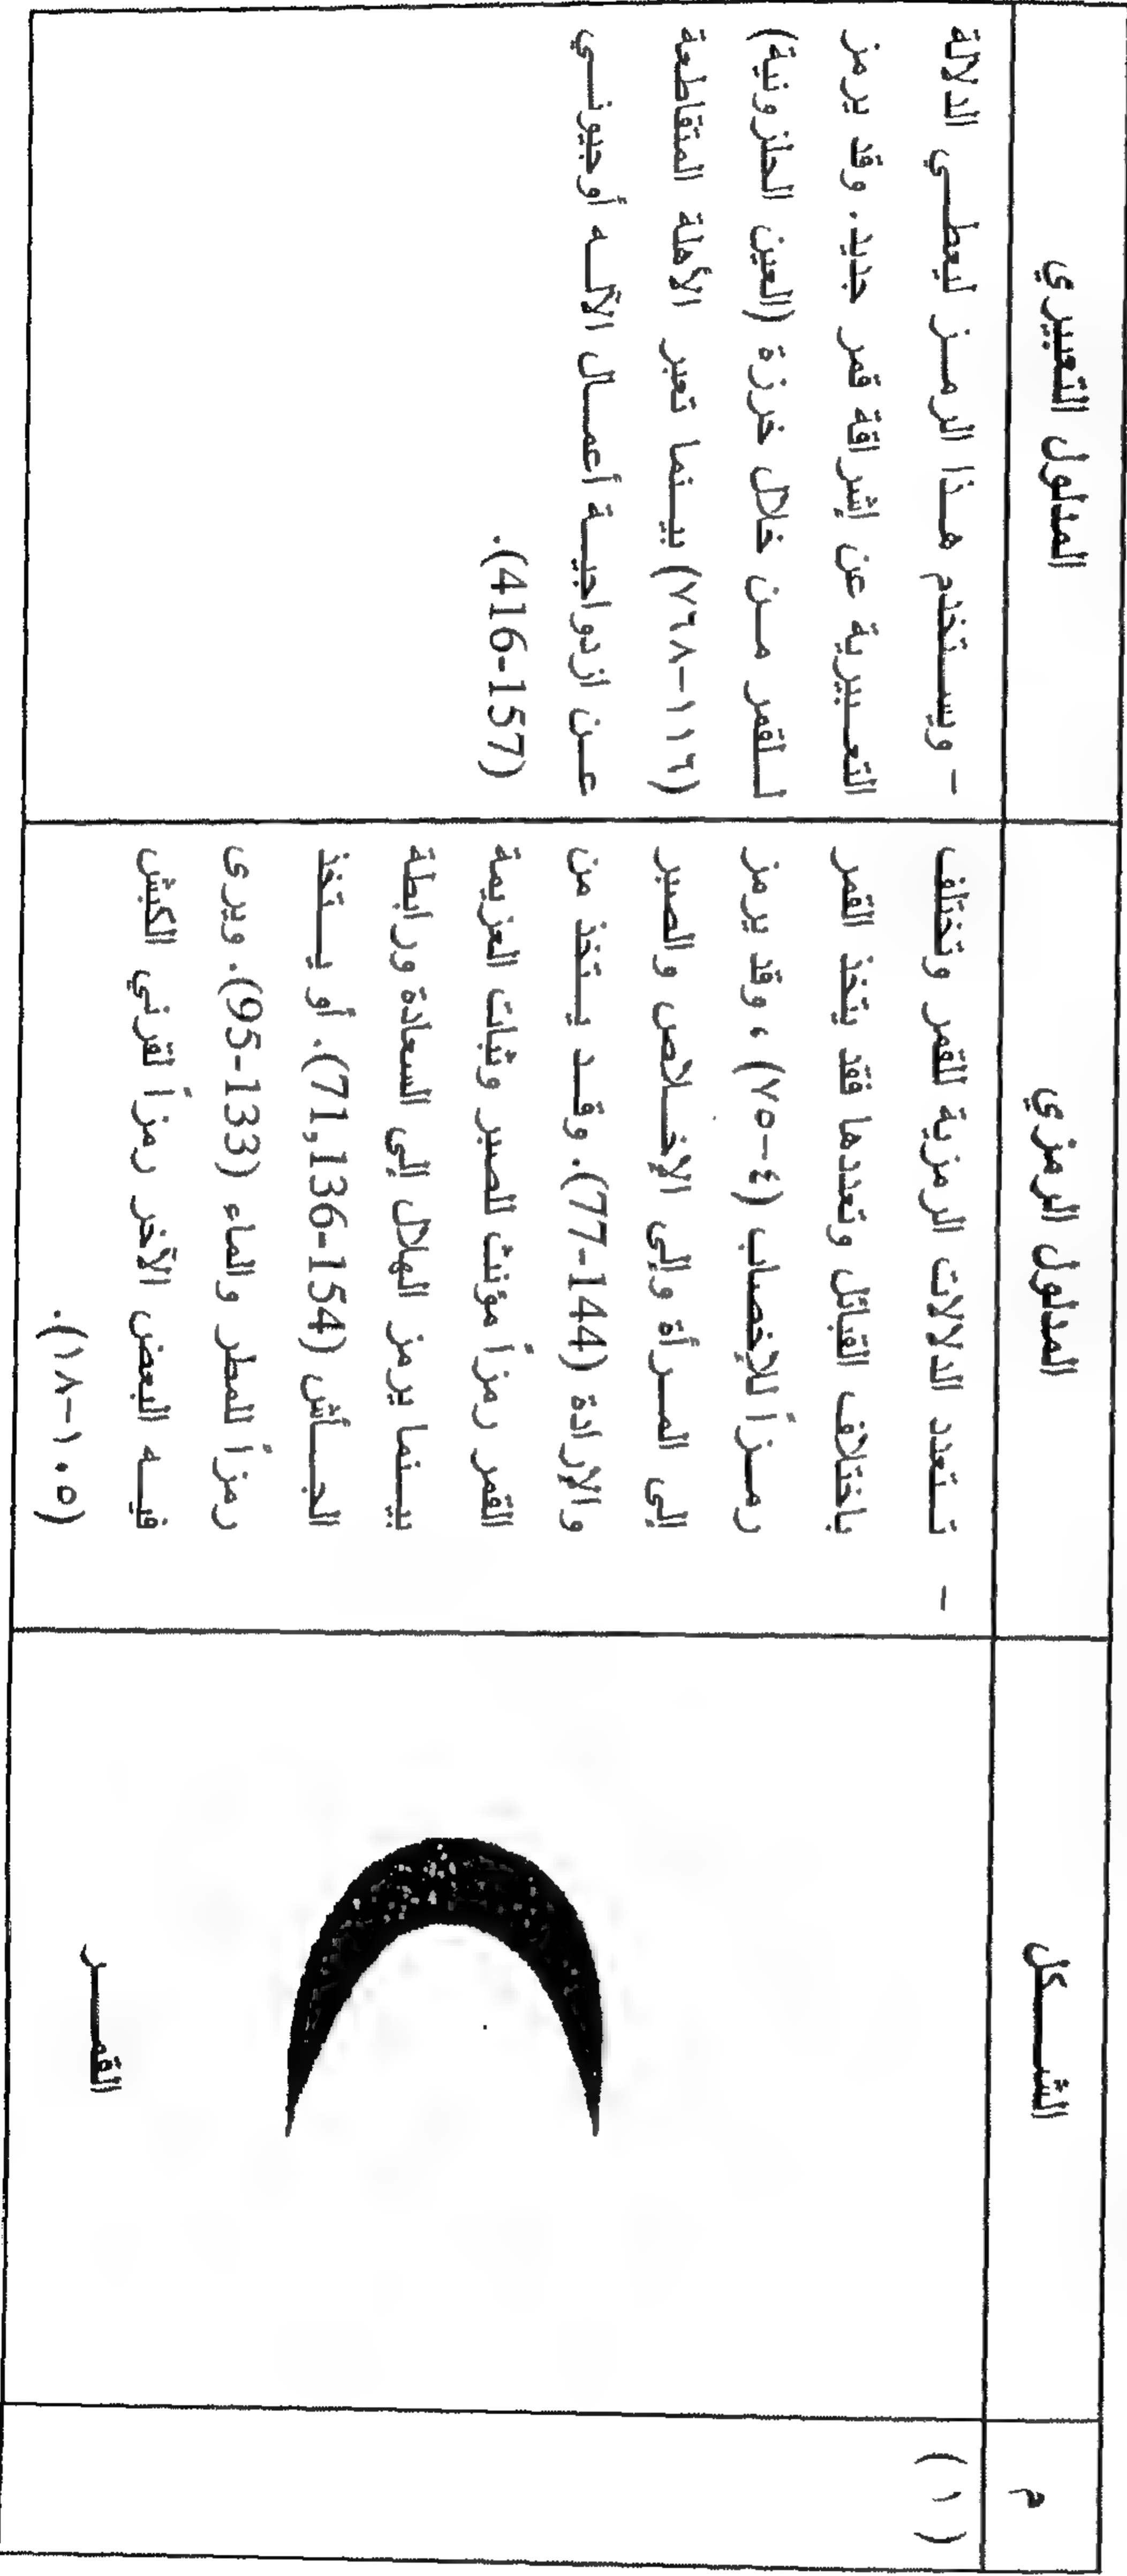 م
الشــكل
المدلول الرمزي
المدلول التعبيري
( ١ )
القمــر
- تـتعدد الدلالات الرمزية للقمر وتختلف
باختلاف القبائل وتعددها فقد يتخذ القمر
رمــزاً للإخصاب (٤-٧٥) ، وقد يرمز
إلى المــرأة وإلى الإخــلاص والصبر
والإرادة (144-77). وقــد يــتخذ من
القمر رمزاً مؤنث للصبر وثبات العزيمة
بيــنما يرمز الهلال إلى السعادة ورابطة
الجــأش (154-71,136). أو يــتخذ
رمزاً للمطر والماء (133-95). ويرى
فيــه البعض الآخر رمزاً لقرني الكبش
(١٠٥-١٨).
- ويســتخدم هــذا الرمــز ليعطــي الدلالة
التعــبيرية عن إشراقة قمر جديد. وقد يرمز
لــلقمر مــن خلال خرزة (العين الحلزونية)
(١١٦-٧٦٨) بيــنما تعبر الأهلة المتقاطعة
عــن ازدواجيــة أعمــال الآلــه أوجيونــي
(157-416).